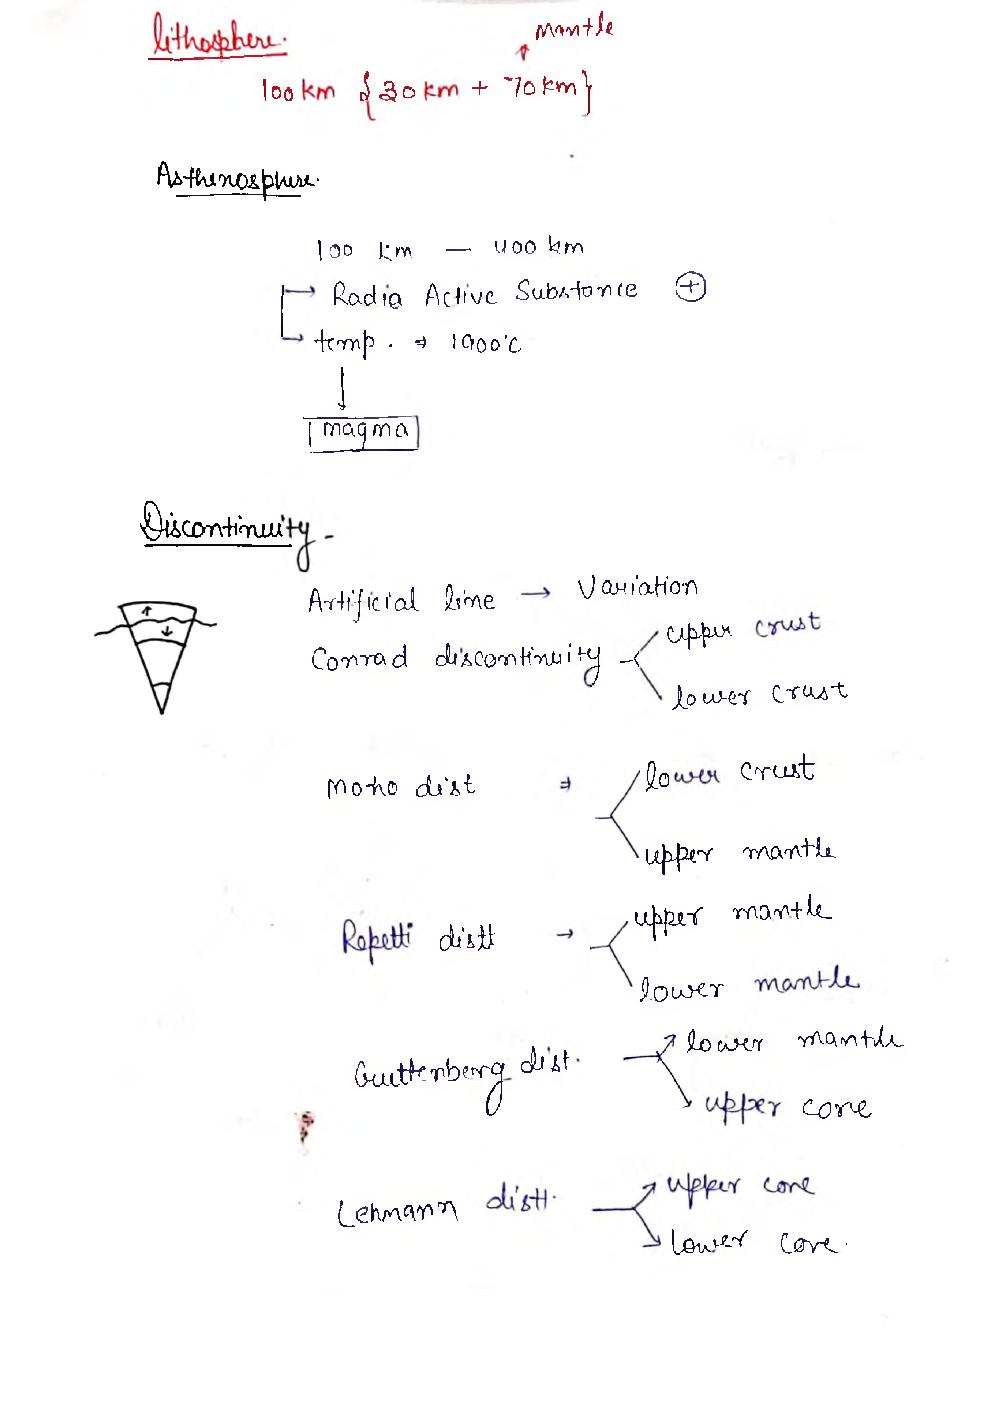 lithosphere.
Mantle
100 km { 30 km + 70 km }
Asthenosphere.
100 km — 400 km
Radio Active Substance ⊕
temp. ⇒ 1900°C
magma
Discontinuity -
Artificial line → Variation
Conrad discontinuity
upper crust
lower crust
Moho dist ⇒
lower crust
upper mantle
Repetti distt →
upper mantle
lower mantle
Guttenberg dist.
lower mantle
upper core
Lehmann distt.
upper core
lower core.